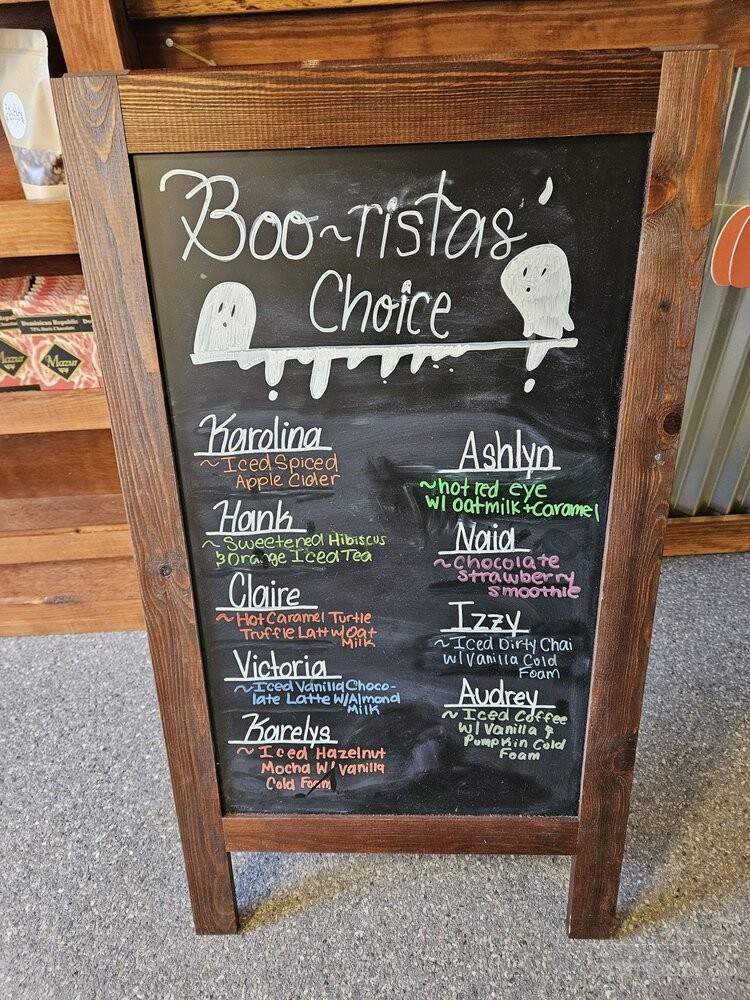 Boo~ristas'
Choice
Karolina
~ Iced Spiced
Apple Cider
Hank
~ Sweetened Hibiscus
& Orange Iced Tea
Claire
~ Hot Caramel Turtle
Truffle Latt w/ Oat
Milk
Victoria
~ Iced Vanilla Choco-
late Latte W/Almond
Milk
Karelys
~ Iced Hazelnut
Mocha W/ Vanilla
Cold Foam
Ashlyn
~ hot red eye
w/ oatmilk + caramel
Naia
~ Chocolate
strawberry
smoothie
Izzy
~ Iced Dirty Chai
w/ Vanilla Cold
Foam
Audrey
~ Iced Coffee
w/ Vanilla &
Pumpkin Cold
Foam
Dominican Republic
Mazur
Mazur